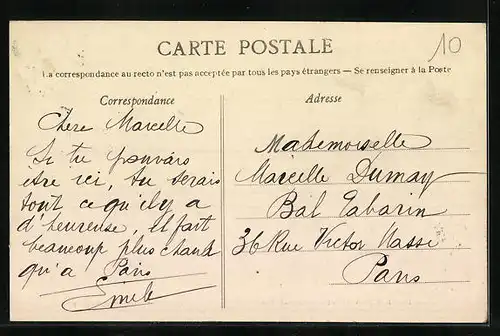 10
CARTE POSTALE
La correspondance au recto n'est pas acceptée par tous les pays étrangers — Se renseigner à la Poste
Correspondance
Chère Marcelle
Si tu pouvais
être ici, tu serais
tout ce qu'il y a
d'heureuse, Il fait
beaucoup plus chaud
qu'a Paris
Emile
Adresse
Mademoiselle
Marcelle Dumay
Bal Tabarin
36 Rue Victor Massé
Paris